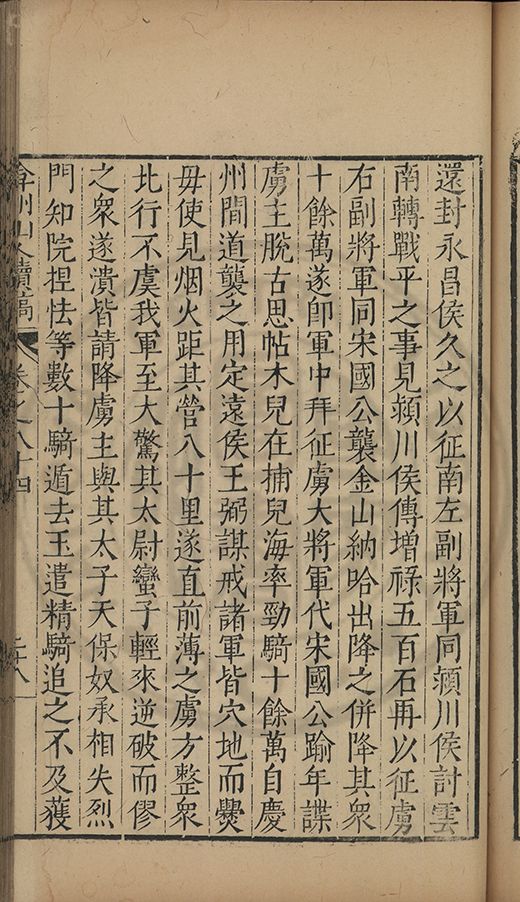 還封永昌侯久之以征南左副將軍同潁川侯討雲
南轉戰平之事見潁川侯傳增祿五百石再以征虜
右副將軍同宋國公襲金山納哈出降之併降其衆
十餘萬遂卽軍中拜征虜大將軍代宋國公踰年諜
虜主脫古思帖木兒在捕兒海率勁騎十餘萬自慶
州間道襲之用定遠侯王弼謀戒諸軍皆穴地而爨
毋使見烟火距其營八十里遂直前薄之虜方整衆
北行不虞我軍至大驚其太尉蠻子輕來逆破而僇
之衆遂潰皆請降虜主與其太子天保奴承相失烈
門知院捏怯等數十騎遁去玉遣精騎追之不及獲
弇州山人續稿 卷之八十四